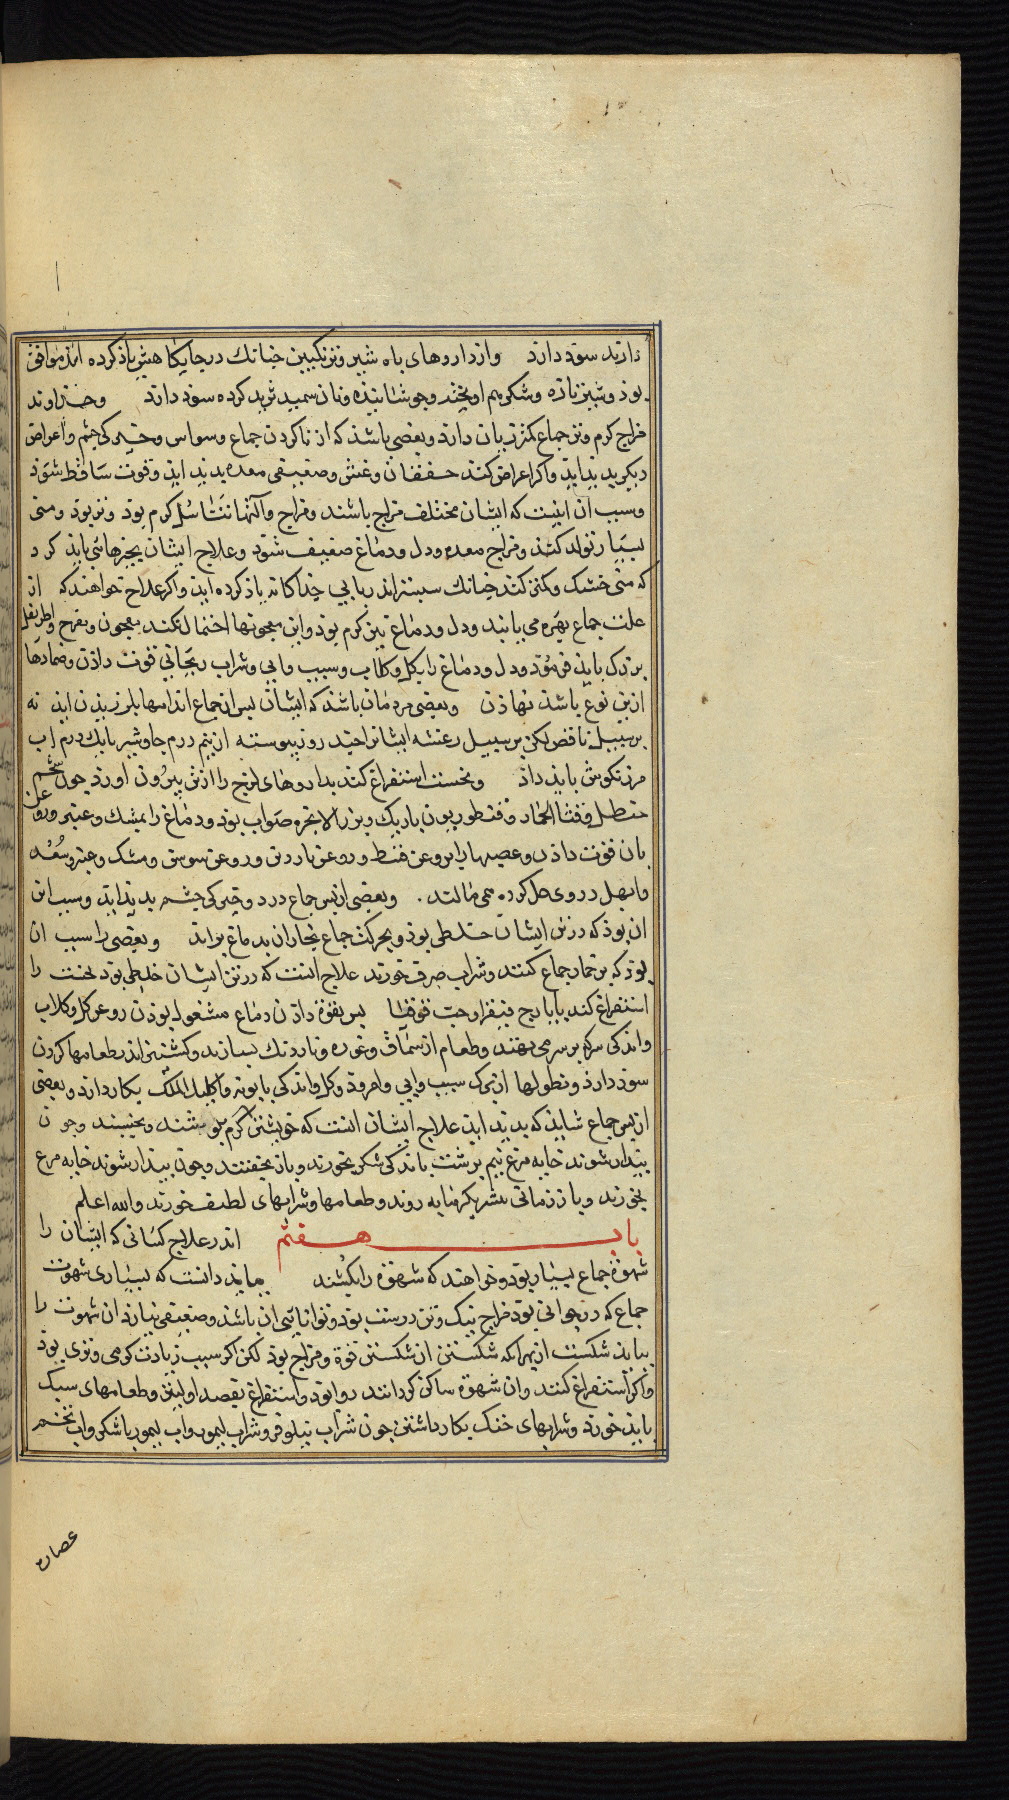 دارند سود دارد واز داروهای باه شیر وترنکبین چنانک درجایکاهش یاذ کرده اند موافق
بوذ وشیر تازه وشکر بهم اویخته وجوشانیذه ونان سمید ثرید کرده سوذ دارد وخداوند
مزاج کرم وتر جماع کمتر زیان دارد وبعضی باشذ که از ناکردن جماع وسواس وخیرکی چشم واعراض
دیکر پدید اید واکر اعراض کنند خفقان وغشی وضعیفی معده پدید اید وقوت ساقط شوذ
وسبب ان اینست که ایشان مختلف مزاج باشند ومزاج والتهاء تناسُل کرم بوذ وتر بوذ ومنی
بسیار تولد کند ومزاج معده ودل ودماغ ضعیف شود وعلاج ایشان بچیزهائی بایذ کرد
که منی خشک وکمتر کند چنانک سپستر اندر بابی جداکانه یاذ کرده ایذ واکر علاج خواهند که از
علت جماع بهره می یابند ودل ودماغ نیز کرم بود واین معجونها احتمال نکند معجون ومفرح واطریفل
بزرک بایذ فرمُوذ ودل ودماغ را بکل وکلاب وسیب وابی وشراب ریحانی قوت داذن وضمادها
ازین نوع باشذ نهاذن وبعضی مردمان باشذ که ایشان پس از جماع اندامها بلرزیذن ایذ نه
برسبیل نافض لکن برسبیل رعشه ایشانرا چند روز پیوسته از نیم درم جاوشیر با یک درم اب
مرزنکوش بایذ داذ ونخست استفراغ کنند بداروهای لزج را ازتن بیرُون اورد چون شحم
حنظل وقثا الحمار وقنطوریون باریک وبزر الانجره صواب بود ودماغ را بمشک وعنبر وروغن
بان قوت داذن وعصبها را بروغن قسط وروغن ناردین وروغن سوسن ومشک وعنبر وسُعد
وابهل در وی حل کرده همی مالند. وبعضی از پس جماع درد وخیرکی چشم پدید ایذ وسبب این
ان بوذ که درتن ایشان خلطی بوذ وبحرکت جماع بخار ان بدماغ براید وبعضی را سبب ان
بوذ که برخمار جماع کنند وشراب صرف خورند علاج انست که درتن ایشان خلطی بود نخست را
استفراغ کنند بایارج فیقرا وحب قوقایا پس بقوة داذن دماغ مشغول بوذن روغن کل وکلاب
واندکی سرکه برسر می نهند وطعام از سماق وغوره وناردنک بسازند وکشنیز اندر طعامها کردن
سود دارذ ونطولها از برک سیب وابی وامرود وکل واندکی بابونه واکلیل الملک بکار دارند وبعضی
از پس جماع شایذ که پدید ایذ علاج ایشان انست که خویشتن کرم بپوشند وبخسبند وچون
بیدار شوند خایه مرغ نیم برشت باندکی شکر بخورند وباز بخفتند وچون بیدار شوند خایه مرغ
بخورند وباز زمانی بکرمابه روند وطعامها وشرابهای لطیف خورند والله اعلم
باب هفتم اندر علاج کسانی که ایشان را
شهوة جماع بسیار بود وخواهند که شهوة را بکُشند بباید دانست که بسیاری شهوت
جماع که درجوانی بوذ مزاج نیک وتن درست بود وتوانائی ان باشد وضعیفی نیارد ان شهوت را
نباید شکست ازبهرآنکه شکستن ان شکستن قوة ومزاج بوذ لکن اکر سبب زیادت کرمی وتری بوذ
واکر استفراغ کنند وان شهوة ساکن کردانند روا بود واستفراغ بفصد اولیتر وطعامهای سبک
باید خورد وشرابهای خنک بکار داشتن چون شراب نیلوفر وشراب لیمو واب لیمو باشکر واب تخم
عصاره